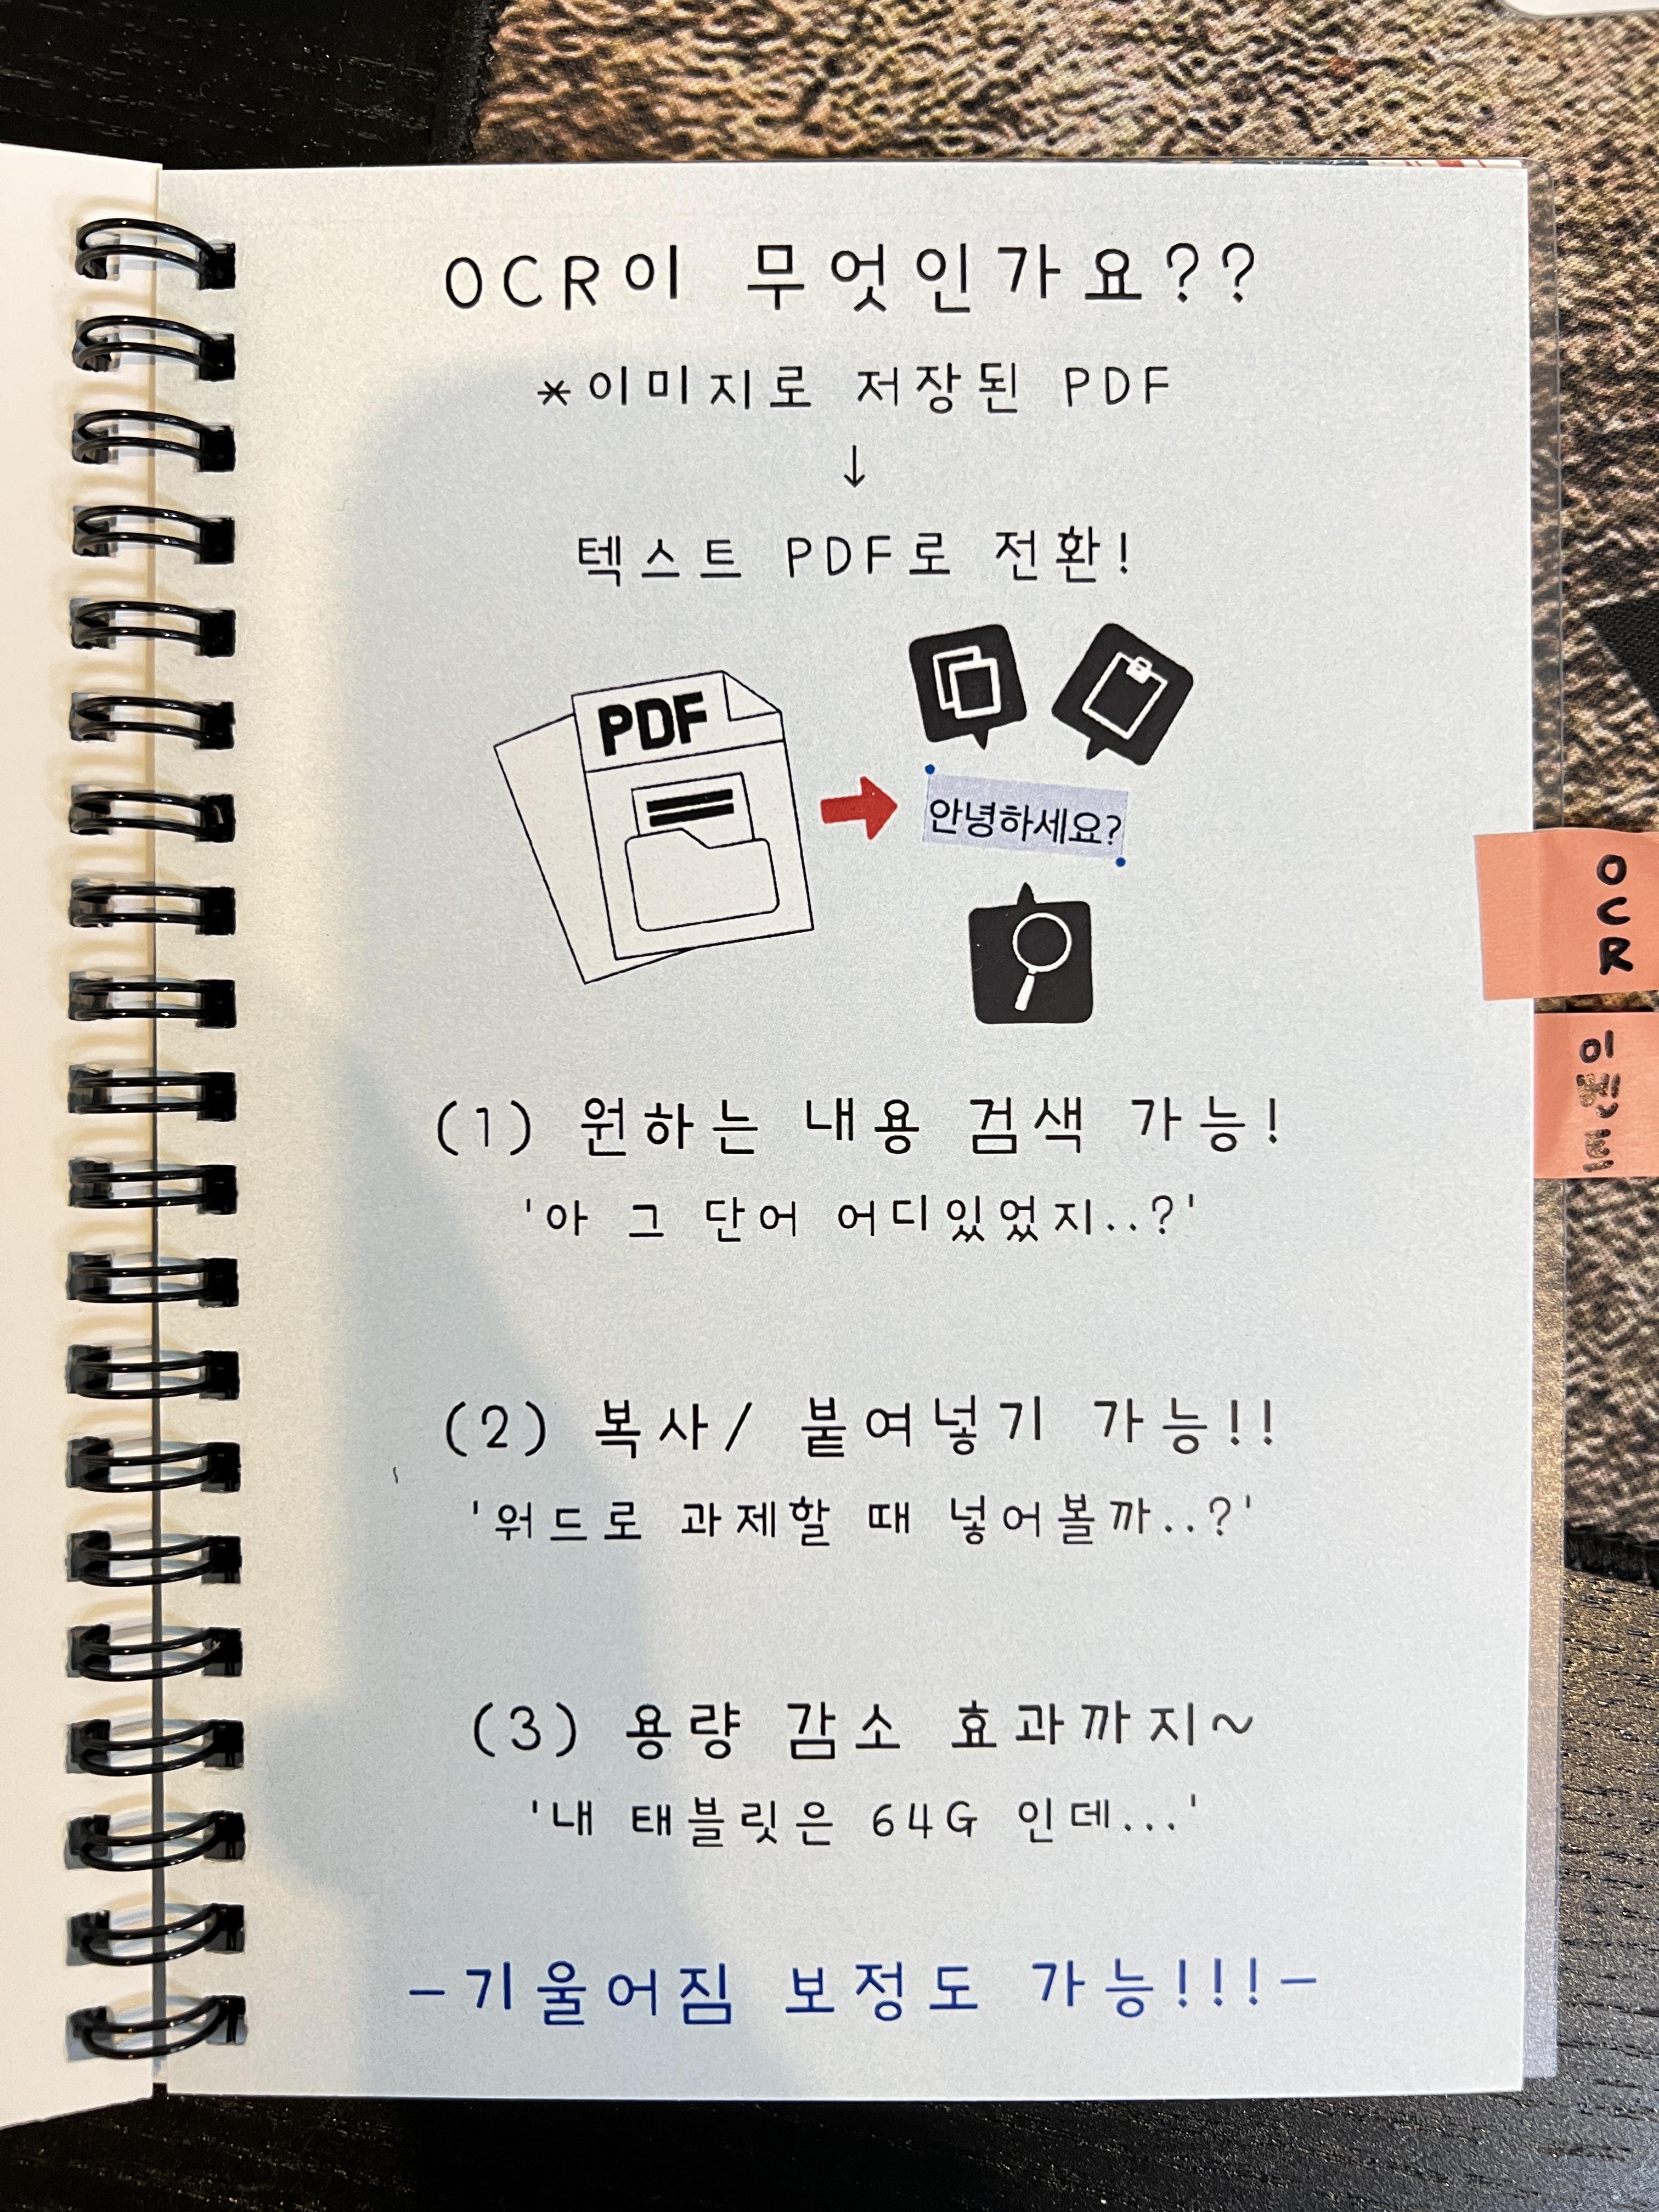 OCR이 무엇인가요??
*이미지로 저장된 PDF
↓
텍스트 PDF로 전환!
PDF
안녕하세요?
OCR
이벤트
(1) 원하는 내용 검색 가능!
'아 그 단어 어디있었지..?'
(2) 복사/ 붙여넣기 가능!!
'워드로 과제할 때 넣어볼까..?'
(3) 용량 감소 효과까지~
'내 태블릿은 64G 인데...'
-기울어짐 보정도 가능!!!-